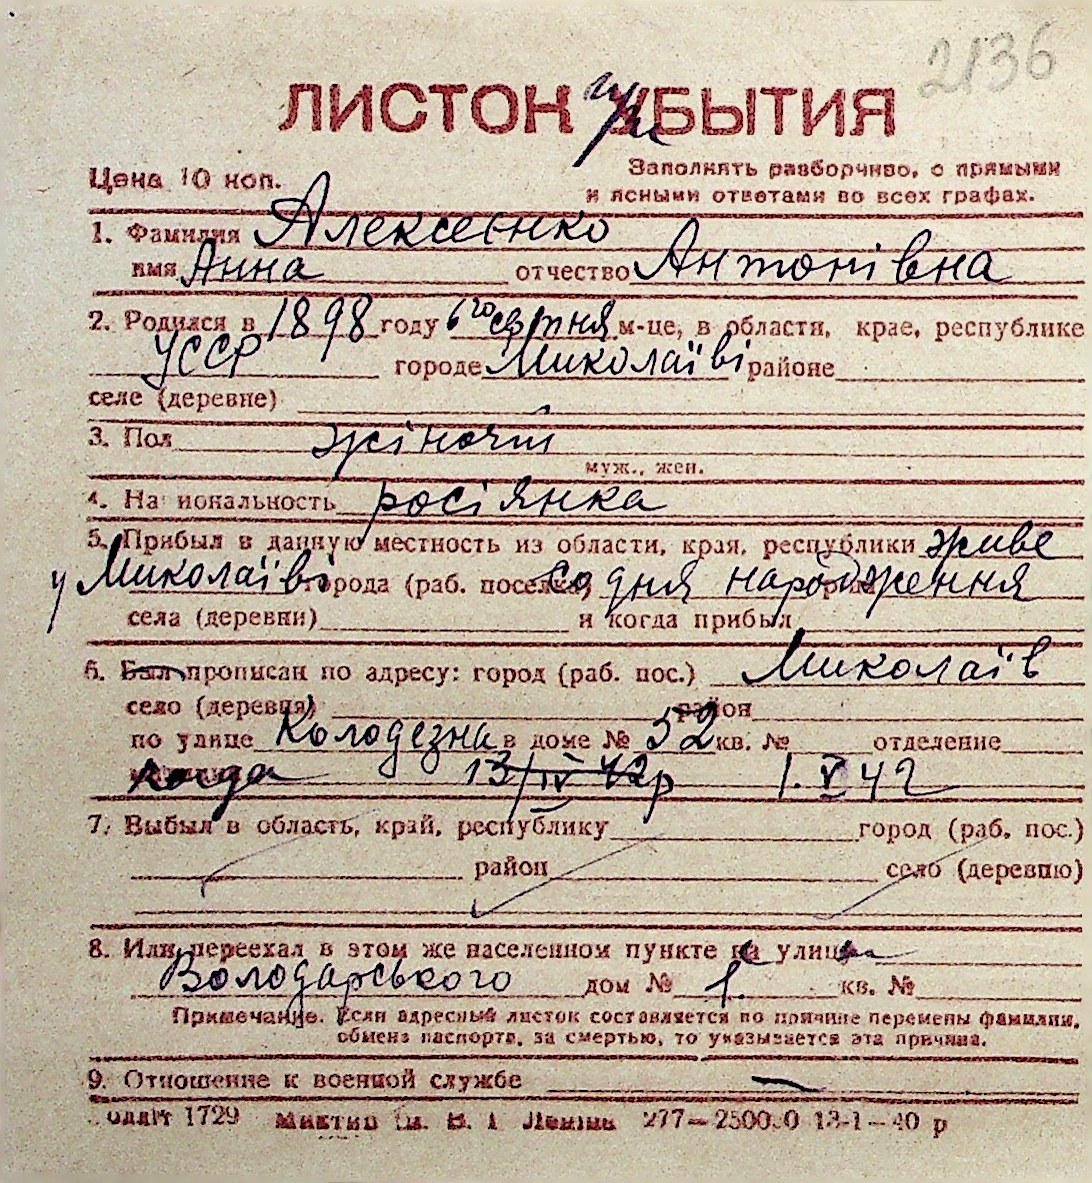 2136
ЛИСТОК УБЫТИЯ
Цена 10 коп.
Заполнять разборчиво, с прямыми
и ясными ответами во всех графах.
1. Фамилия Алексеєнко
имя Анна отчество Антонівна
2. Родился в 1898 году 6го серпня м-це, в области, крае, республике
УССР городе Миколаїві районе
селе (деревне)
3. Пол жіночій
муж., жен.
4. Национальность росіянка
5. Прибыл в данную местность из области, края, республики живе
у Миколаїві города (раб. поселка) со дня народження
села (деревни) и когда прибыл
6. Был прописан по адресу: город (раб. пос.) Миколаїв
село (деревня) район
по улице Колодезна в доме № 52 кв. № отделение
когда 13/IV 42р 1.V 42
7. Выбыл в область, край, республику город (раб. пос.)
район село (деревню)
8. Или переехал в этом же населенном пункте на улицу
Володарського дом № 1 кв. №
Примечание. Если адресный листок составляется по причине перемены фамилии,
обмена паспорта, за смертью, то указывается эта причина.
9. Отношение к военной службе —
облліт 1729 Миктип ім. В. І Леніна 277—25000 13-1—40 р